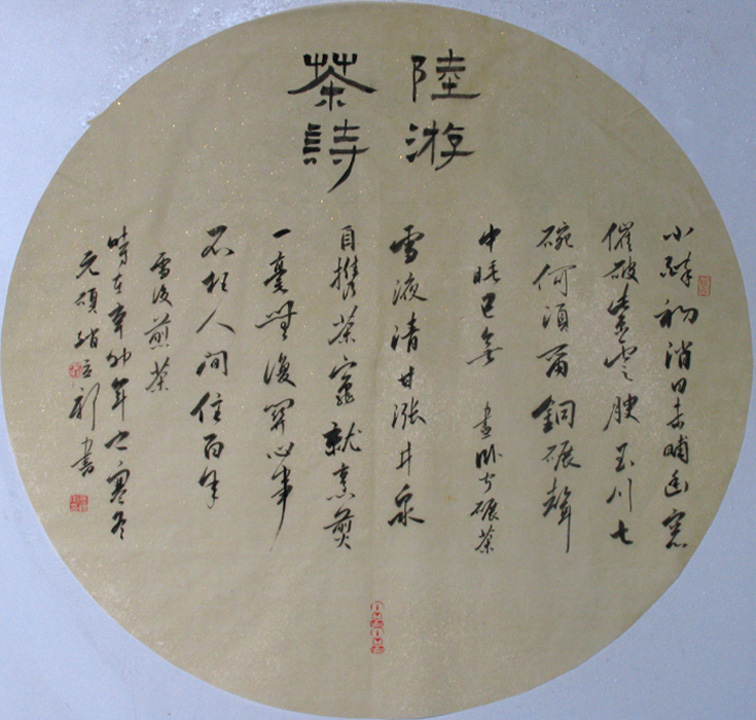 陸游
茶詩
小醉初消日未晡幽窓
催破紫雲腴玉川七
碗何須爾銅碾聲
中睡已無 晝卧聞碾茶
雪液清甘漲井泉
自携茶竈就烹煎
一毫無復關心事
不枉人間住百年
雪後煎茶
時在辛卯年之寒冬
書